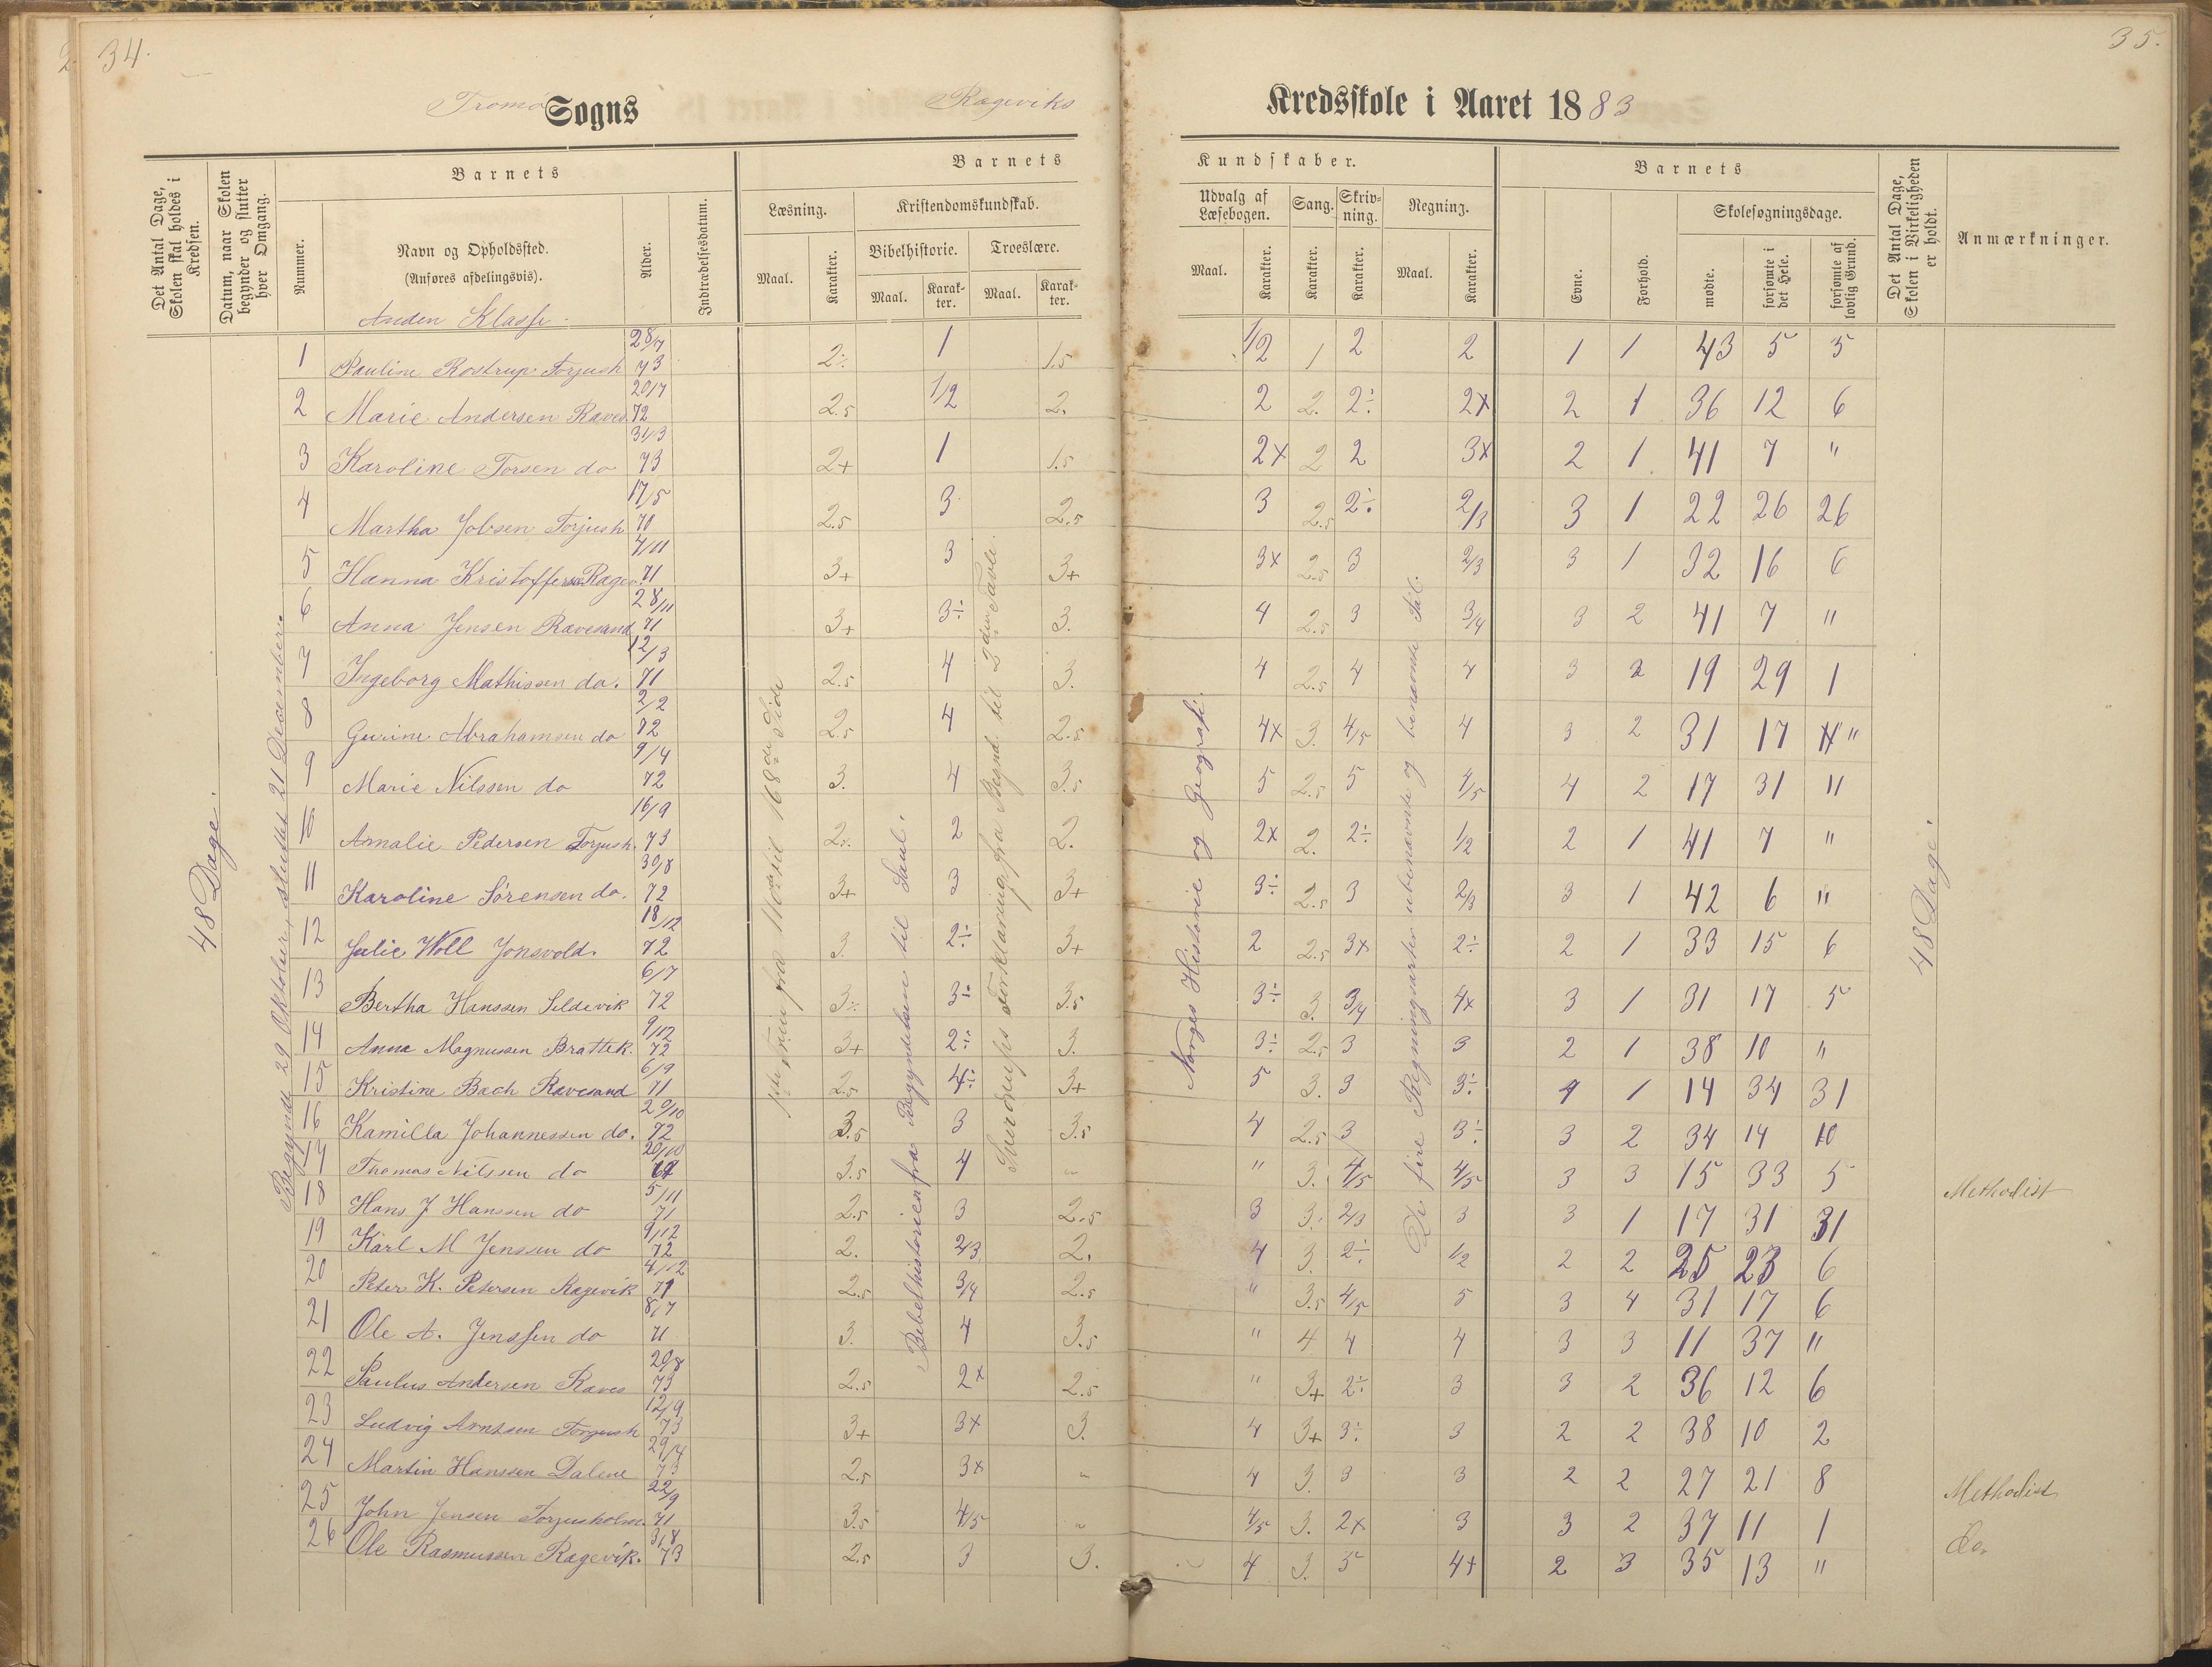 34.
35.
Tromø Sogns Rageviks Kredsskole i Aaret 1883
Det Antal Dage, Skolen skal holdes i Kredsen.
Datum, naar Skolen begynder og slutter hver Omgang.
Barnets
Nummer.
Navn og Opholdssted.
(Anføres afdelingsvis).
Alder.
Indtrædelsesdatum.
Barnets Kundskaber.
Læsning.
Maal. Karakter.
Kristendomskundskab.
Bibelhistorie. Troeslære.
Maal. Karakter. Maal. Karakter.
Udvalg af Læsebogen. Sang. Skrivning. Regning.
Maal. Karakter. Karakter. Karakter. Maal. Karakter.
Barnets
Evne. Forhold.
Skolesøgningsdage.
mødte. forsømte i det Hele. forsømte af lovlig Grund.
Det Antal Dage, Skolen i Virkeligheden er holdt.
Anmærkninger.
Anden Klasse.
48 Dage.
Begyndt 29 Oktober, sluttet 21 December.
Bibelhistorien fra Begyndelsen til Saul.
Sverdrups Forklaring fra Begynd. til 2den Tavle.
Norges Historie og Geografi.
De fire Regningsarter ubenævnte og benævnte Tal.
48 Dage.
1 Pauline Rostrup Torjush 28/7 73 2÷ 1 1.5 1/2 1 2 2 1 1 43 5 5
2 Marie Andersen Raves. 20/7 72 2.5 1/2 2. 2 2. 2÷ 2x 2 1 36 12 6
3 Karoline Torsen do 31/3 73 2+ 1 1.5 2x 2 2 3x 2 1 41 7 "
4 Martha Jobsen Torjush 17/5 70 2.5 3 2.5 3 2.5 2÷ 2/3 3 1 22 26 26
5 Hanna Kristoffersen Ragev. 4/11 71 3+ 3 3+ 3x 2.5 3 2/3 3 1 32 16 6
6 Anna Jensen Ravesand 28/11 71 3+ 3÷ 3. 4 2.5 3 3/4 3 2 41 7 "
7 Ingeborg Mathissen do. 12/3 71 2.5 4 3. 4 2.5 4 4 3 2 19 29 1
8 Gurine Abrahamsen do 2/2 72 2.5 4 2.5 4x 3. 4/5 4 3 2 31 17 "
9 Marie Nilssen do 9/4 72 3. 4 3.5 5 2.5 5 4/5 4 2 17 31 "
10 Amalie Pedersen Torjush. 16/9 73 2÷ 2 2. 2x 2. 2÷ 1/2 2 1 41 7 "
11 Karoline Sørensen do. 30/8 72 3+ 3 3+ 3÷ 2.5 3 2/3 3 1 42 6 "
12 Julie Woll Jonsvold. 18/12 72 3. 2÷ 3+ 2 2.5 3x 2÷ 2 1 33 15 6
13 Bertha Hanssen Sildevik 6/7 72 3÷ 3÷ 3.5 3÷ 3. 3/4 4x 3 1 31 17 5
14 Anna Magnussen Brattek. 9/12 72 3+ 2÷ 3. 3÷ 2.5 3 3 2 1 38 10 "
15 Kristine Bach Ravesand 6/9 71 2.5 4÷ 3+ 5 3. 3 3÷ 4 1 14 34 31
16 Kamilla Johannessen do. 29/10 72 3.5 3 3.5 4 2.5 3 3÷ 3 2 34 14 10
17 Thomas Nilssen do 20/10 3.5 4 " " 3. 4/5 4/5 3 3 15 33 5 Methodist
18 Hans J Hanssen do 5/11 71 2.5 3 2.5 3 3. 2/3 3 3 1 17 31 31
19 Karl M Jenssen do 9/12 72 2. 2/3 2. 4 3. 2÷ 1/2 2 2 25 23 6
20 Peter K. Petersen Ragevik 4/12 71 2.5 3/4 2.5 " 3.5 4/5 5 3 4 31 17 6
21 Ole A. Jenssen do 8/7 71 3. 4 3.5 " 4 4 4 3 3 11 37 "
22 Paulus Andersen Raves 20/8 73 2.5 2x 2.5 " 3+ 2÷ 3 3 2 36 12 6
23 Ludvig Arntsen Torjush 12/9 73 3+ 3x 3. 4 3+ 3÷ 3 2 2 38 10 2
24 Martin Hanssen Dalene 29/4 73 2.5 3x " 4 3. 3 3 2 2 27 21 8 Methodist
25 John Jensen Torjusholm. 22/9 71 3.5 4/5 " 4/5 3. 2x 3 3 2 37 11 1 Do.
26 Ole Rasmussen Ragevik. 31/8 73 2.5 3 3. 4 3. 5 4+ 2 3 35 13 "